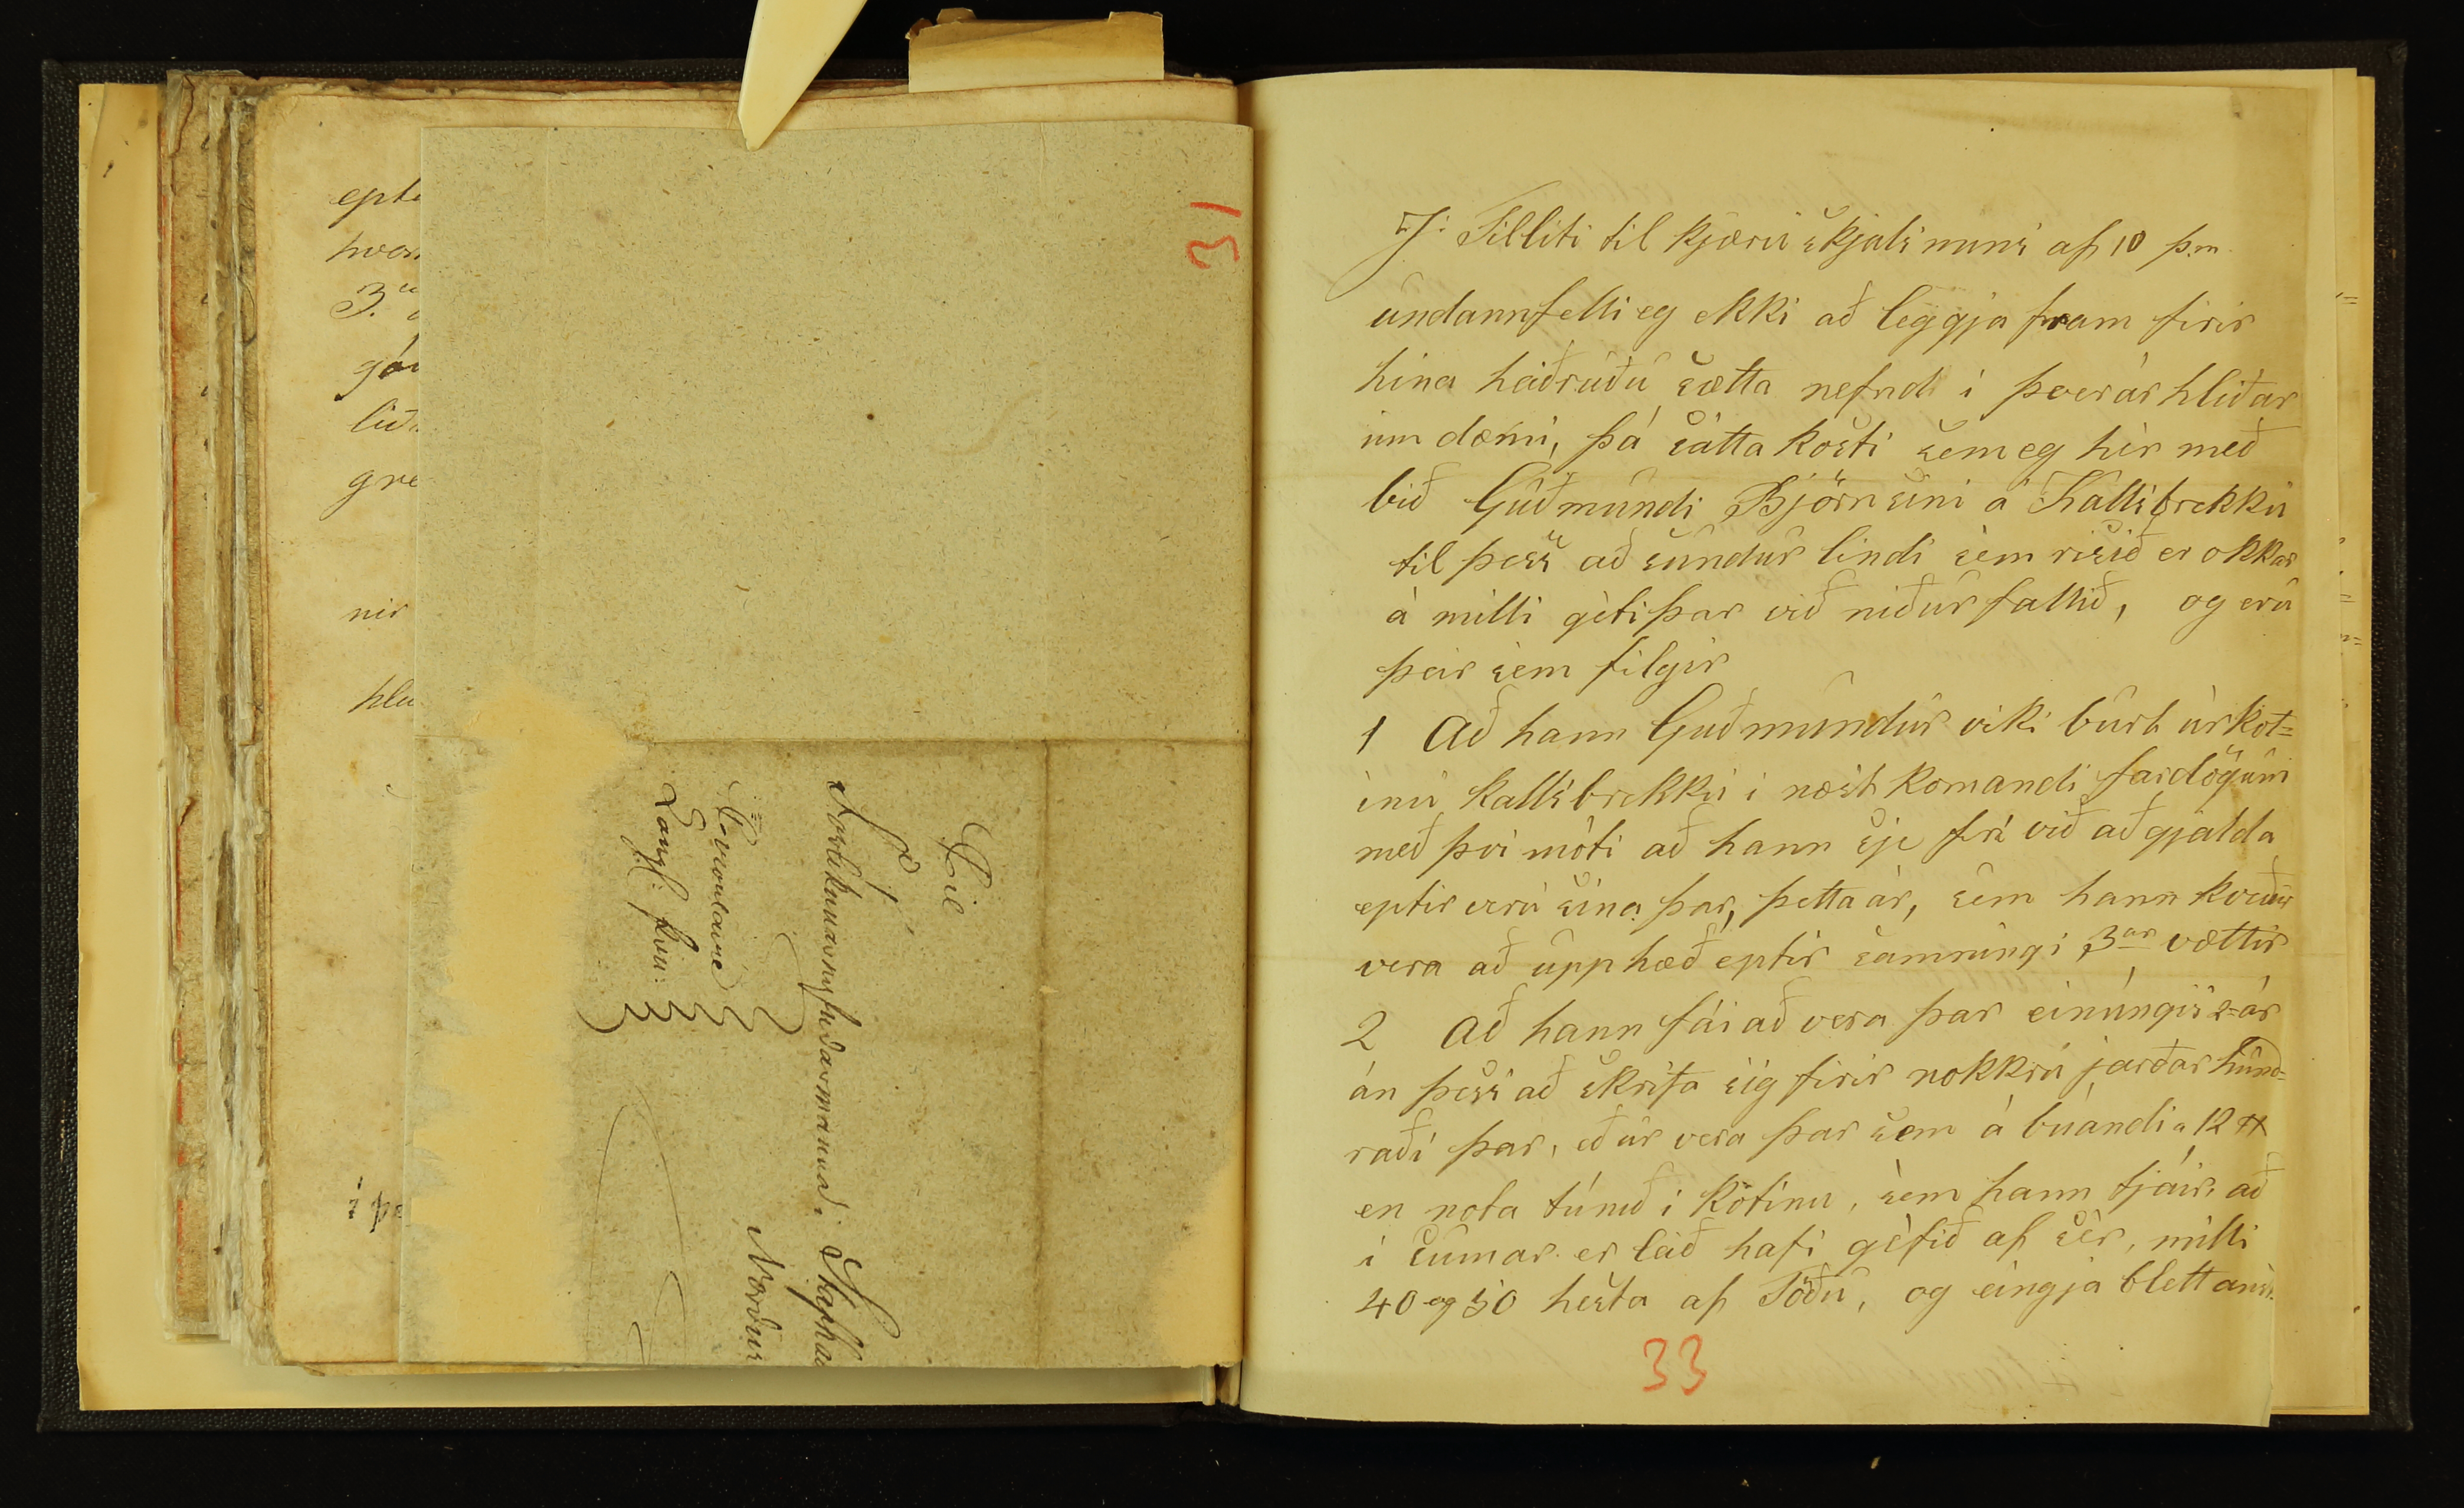 epte
hvor
3.
gór
lið
gre
nir
hlu
í þe
31
Til
Forlikunarnefndarmannd. Skapha
Norður
33
Jː Tilliti til kjæru skjals míns af 10 þ.m.
undannfelli eg ekki að leggja fram firir
hina heiðruðu sætta nefnd í Þverárhlíðar
um dæmi, þá sátta kosti sem eg hér með
bið Guðmundi Björnsini á Kallsbrekku
til þess að sundur lindi sem risið er okkar
á milli géti þar við niður fallið, og eru
þeir sem filgir
1 Að hann Guðmundur víki burt úr kot=
inu kallsbrekku í næst komandi fardögum
með því móti að hann sje frí við að gjalda
eptir veru sína þar, þetta ár, sem hann kveður
vera að upphæð eptir samníngi 3ar vættir
2 Að hann fái að vera þar einúngis 2=ár
án þess að skrifa sig firir nokkru jarðar hund=
raði þar, eður vera þar sem á búandi
en nota túnið í kotinu, sem hann tjáir, að
í sumar er leið hafi géfið af sér, milli
40 og 50 hesta af Töðu, og eingja blettann